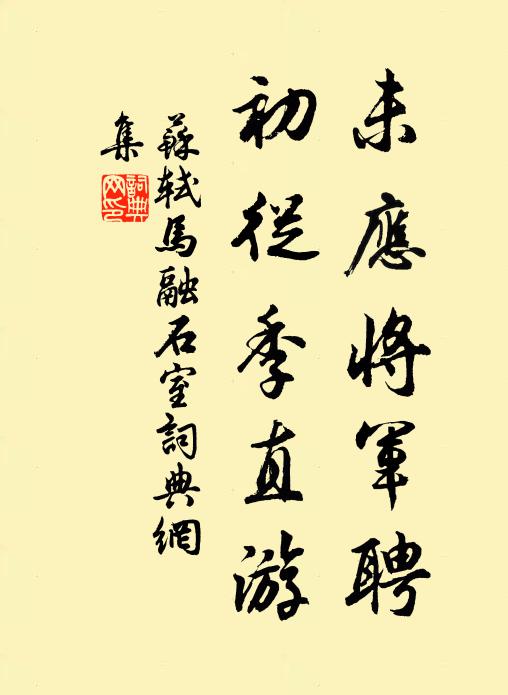 未應將軍聘
初從季直游
蘇軾馬融石室詞典網
集
詞典
网印